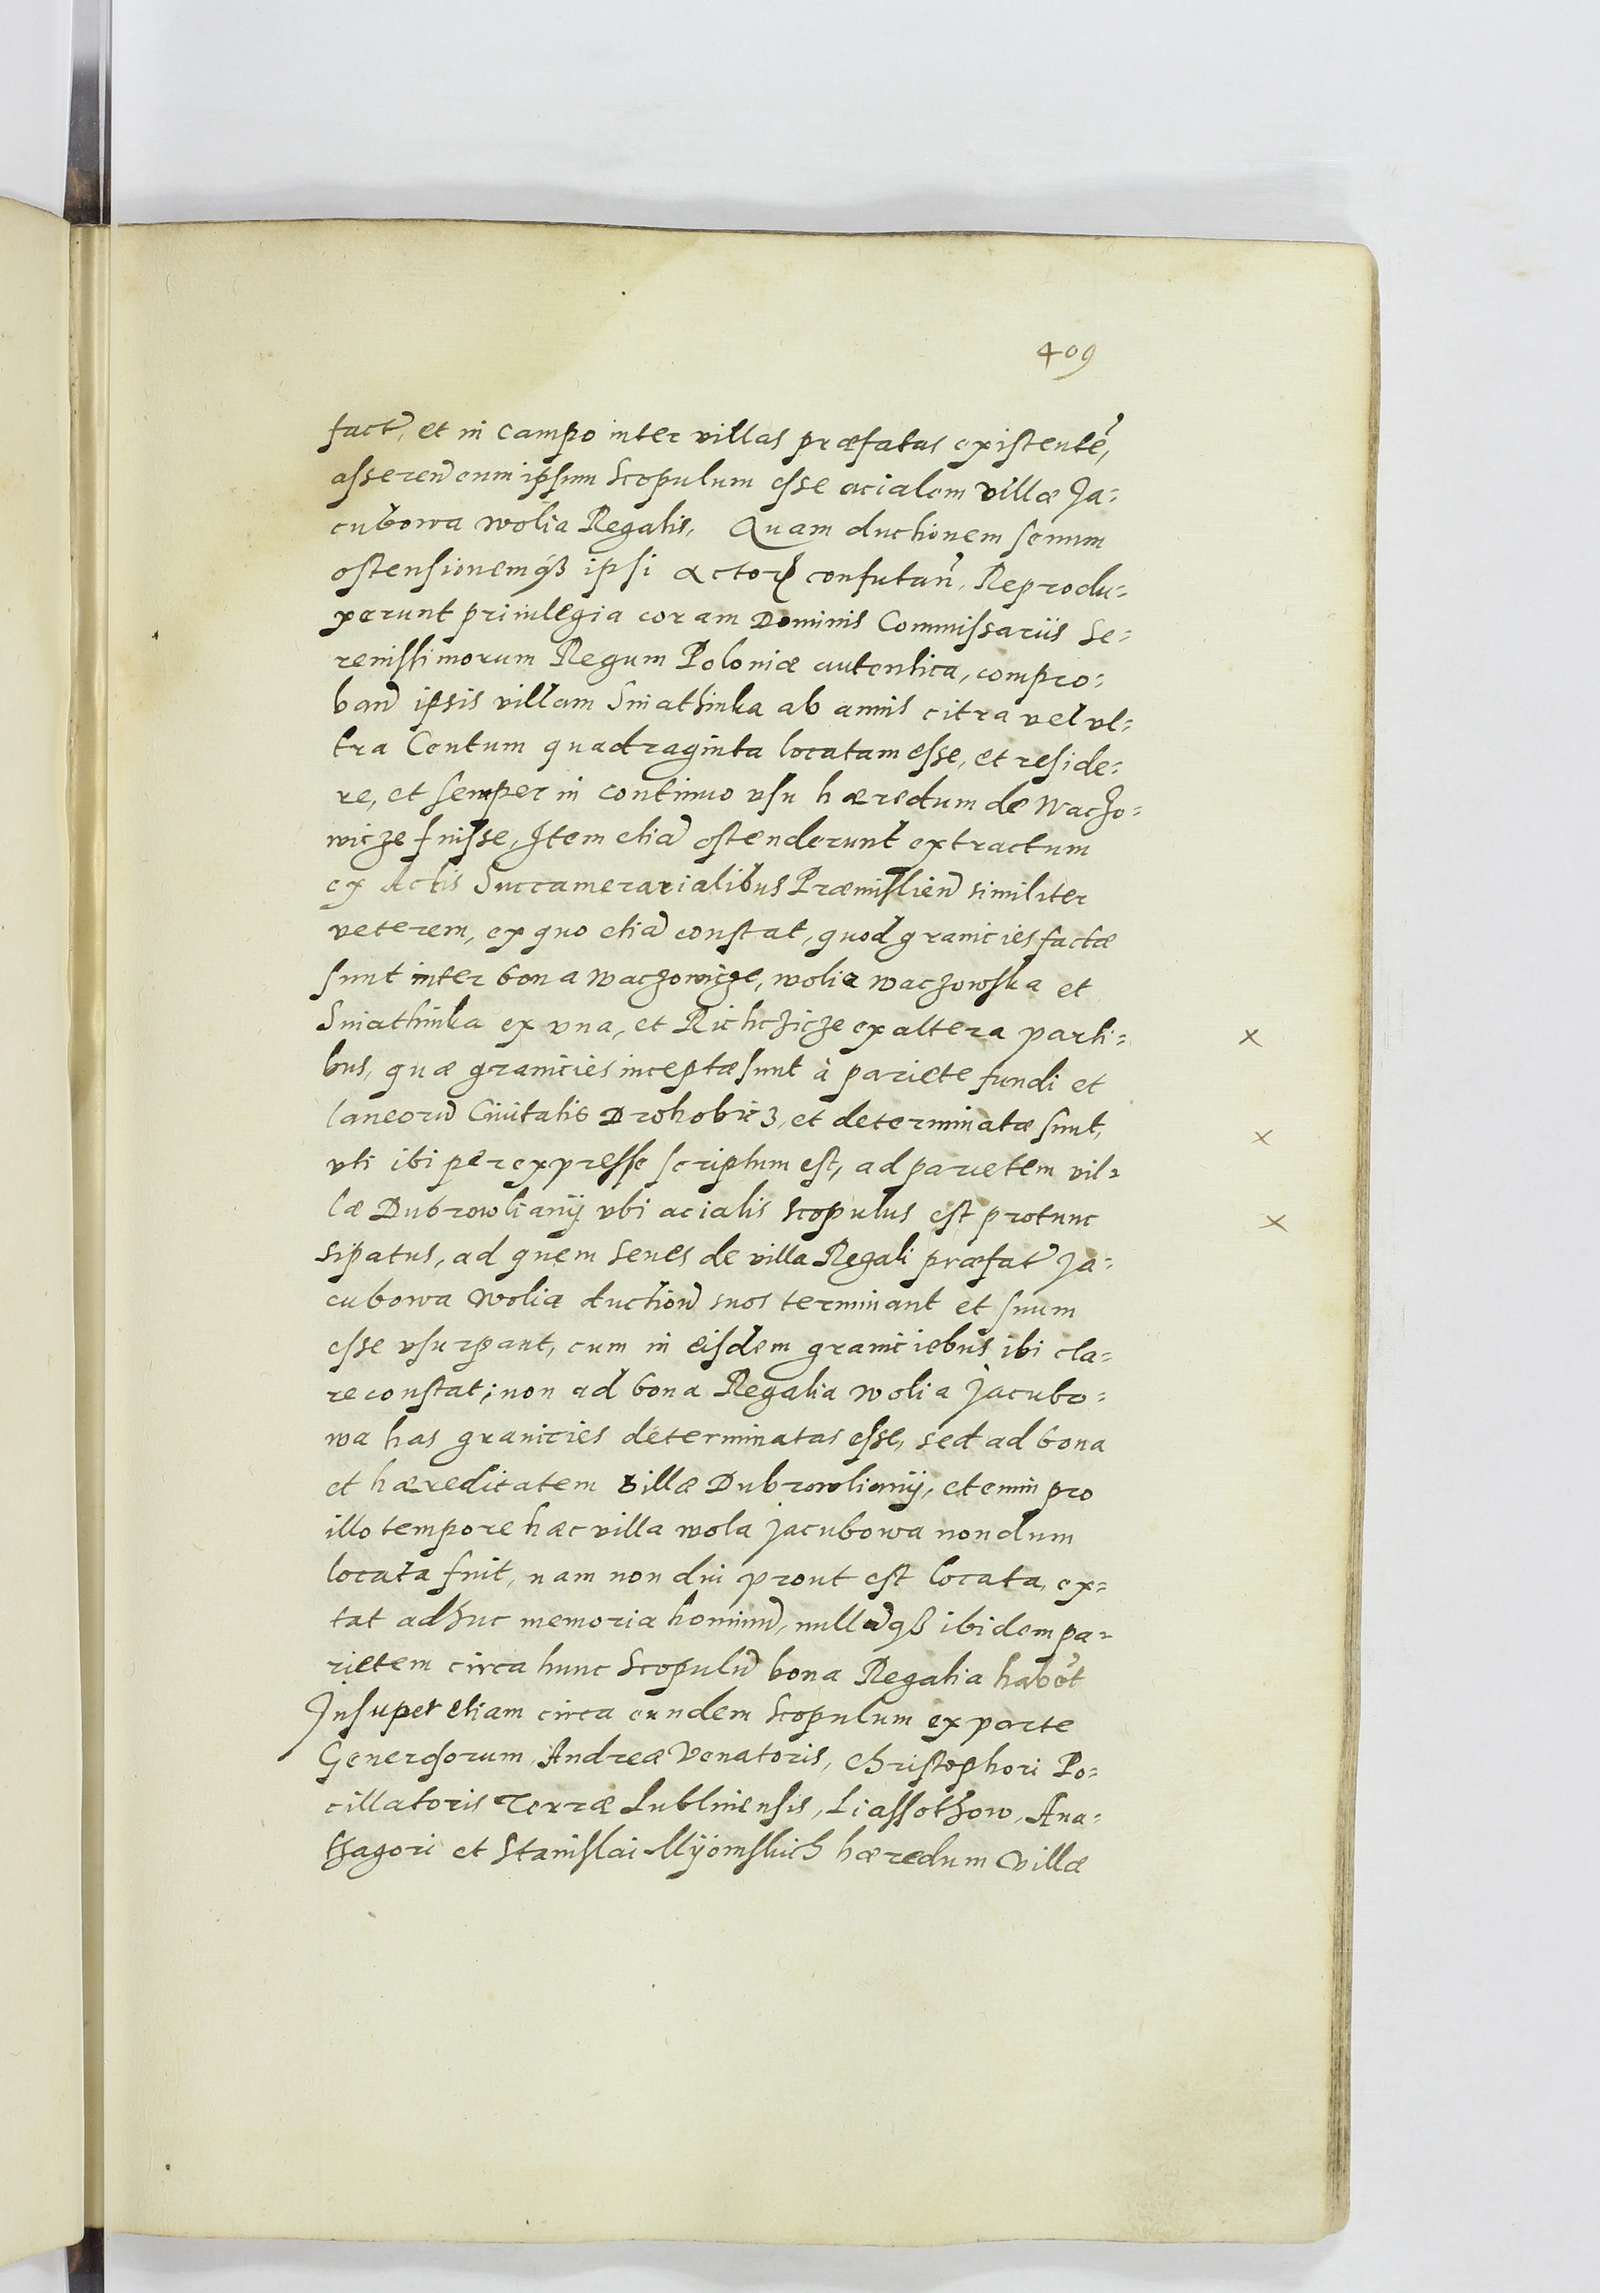 409
fact, et in campo inter villas præfatas existente,
asseren eum ipsum Scopulum esse acialem villæ Ja=
cubowa wolia Regalis, Quam ductionem senum
ostensionemq3 ipsi Actores confutan, Reprodu=
xerunt priuilegia coram Dominis Commissariis Se=
renissimorum Regum Poloniæ autentica, compro=
ban ipsis villam Sniathinka ab annis citra vel vl=
tra Centum quadraginta locatam esse, et reside=
re, et semper in continuo vsu hæredum de Waczo=
wicze fuisse, Item etia ostenderunt extractum
ex Actis Succamerarialibus Præmislien similiter
veterem, ex quo etia constat, quod granicies factæ
sunt inter bona waczowicze, wolia waczowska et
Sniathinka ex vna, et Richczicze ex altera parti=
bus, quæ granicies inceptæ sunt à pariete fundi et
laneoru Ciuitatis Drohobicz, et determinatæ sunt,
vti ibi per expresse scriptum est, ad parietem vil=
læ Dubrowlianij vbi acialis Scopulus est protunc
sipatus, ad quem senes de villa Regali præfat Ja=
cubowa Wolia duction suos terminant et suum
esse vsurpant, cum in eisdem graniciebus ibi cla=
re constat; non ad bona Regalia wolia Jacubo=
wa has granicies determinatas esse, sed ad bona
et hæreditatem villæ Dubrowlianij, etenim pro
illo tempore hæc villa wola Jacubowa nondum
locata fuit, nam non diu prout est locata, ex=
tat adhuc memoria hominu, nullaq3 ibidem pa=
rietem circa hunc Scopulu bona Regalia habet
Insuper etiam circa eundem Scopulum ex parte
Generosorum Andreæ Venatoris, Christophori Po=
cillatoris Terræ Lublinensis, Liassothow, Ana=
thagori et Stanislai Mÿomskich hæredum villæ
x
x
x